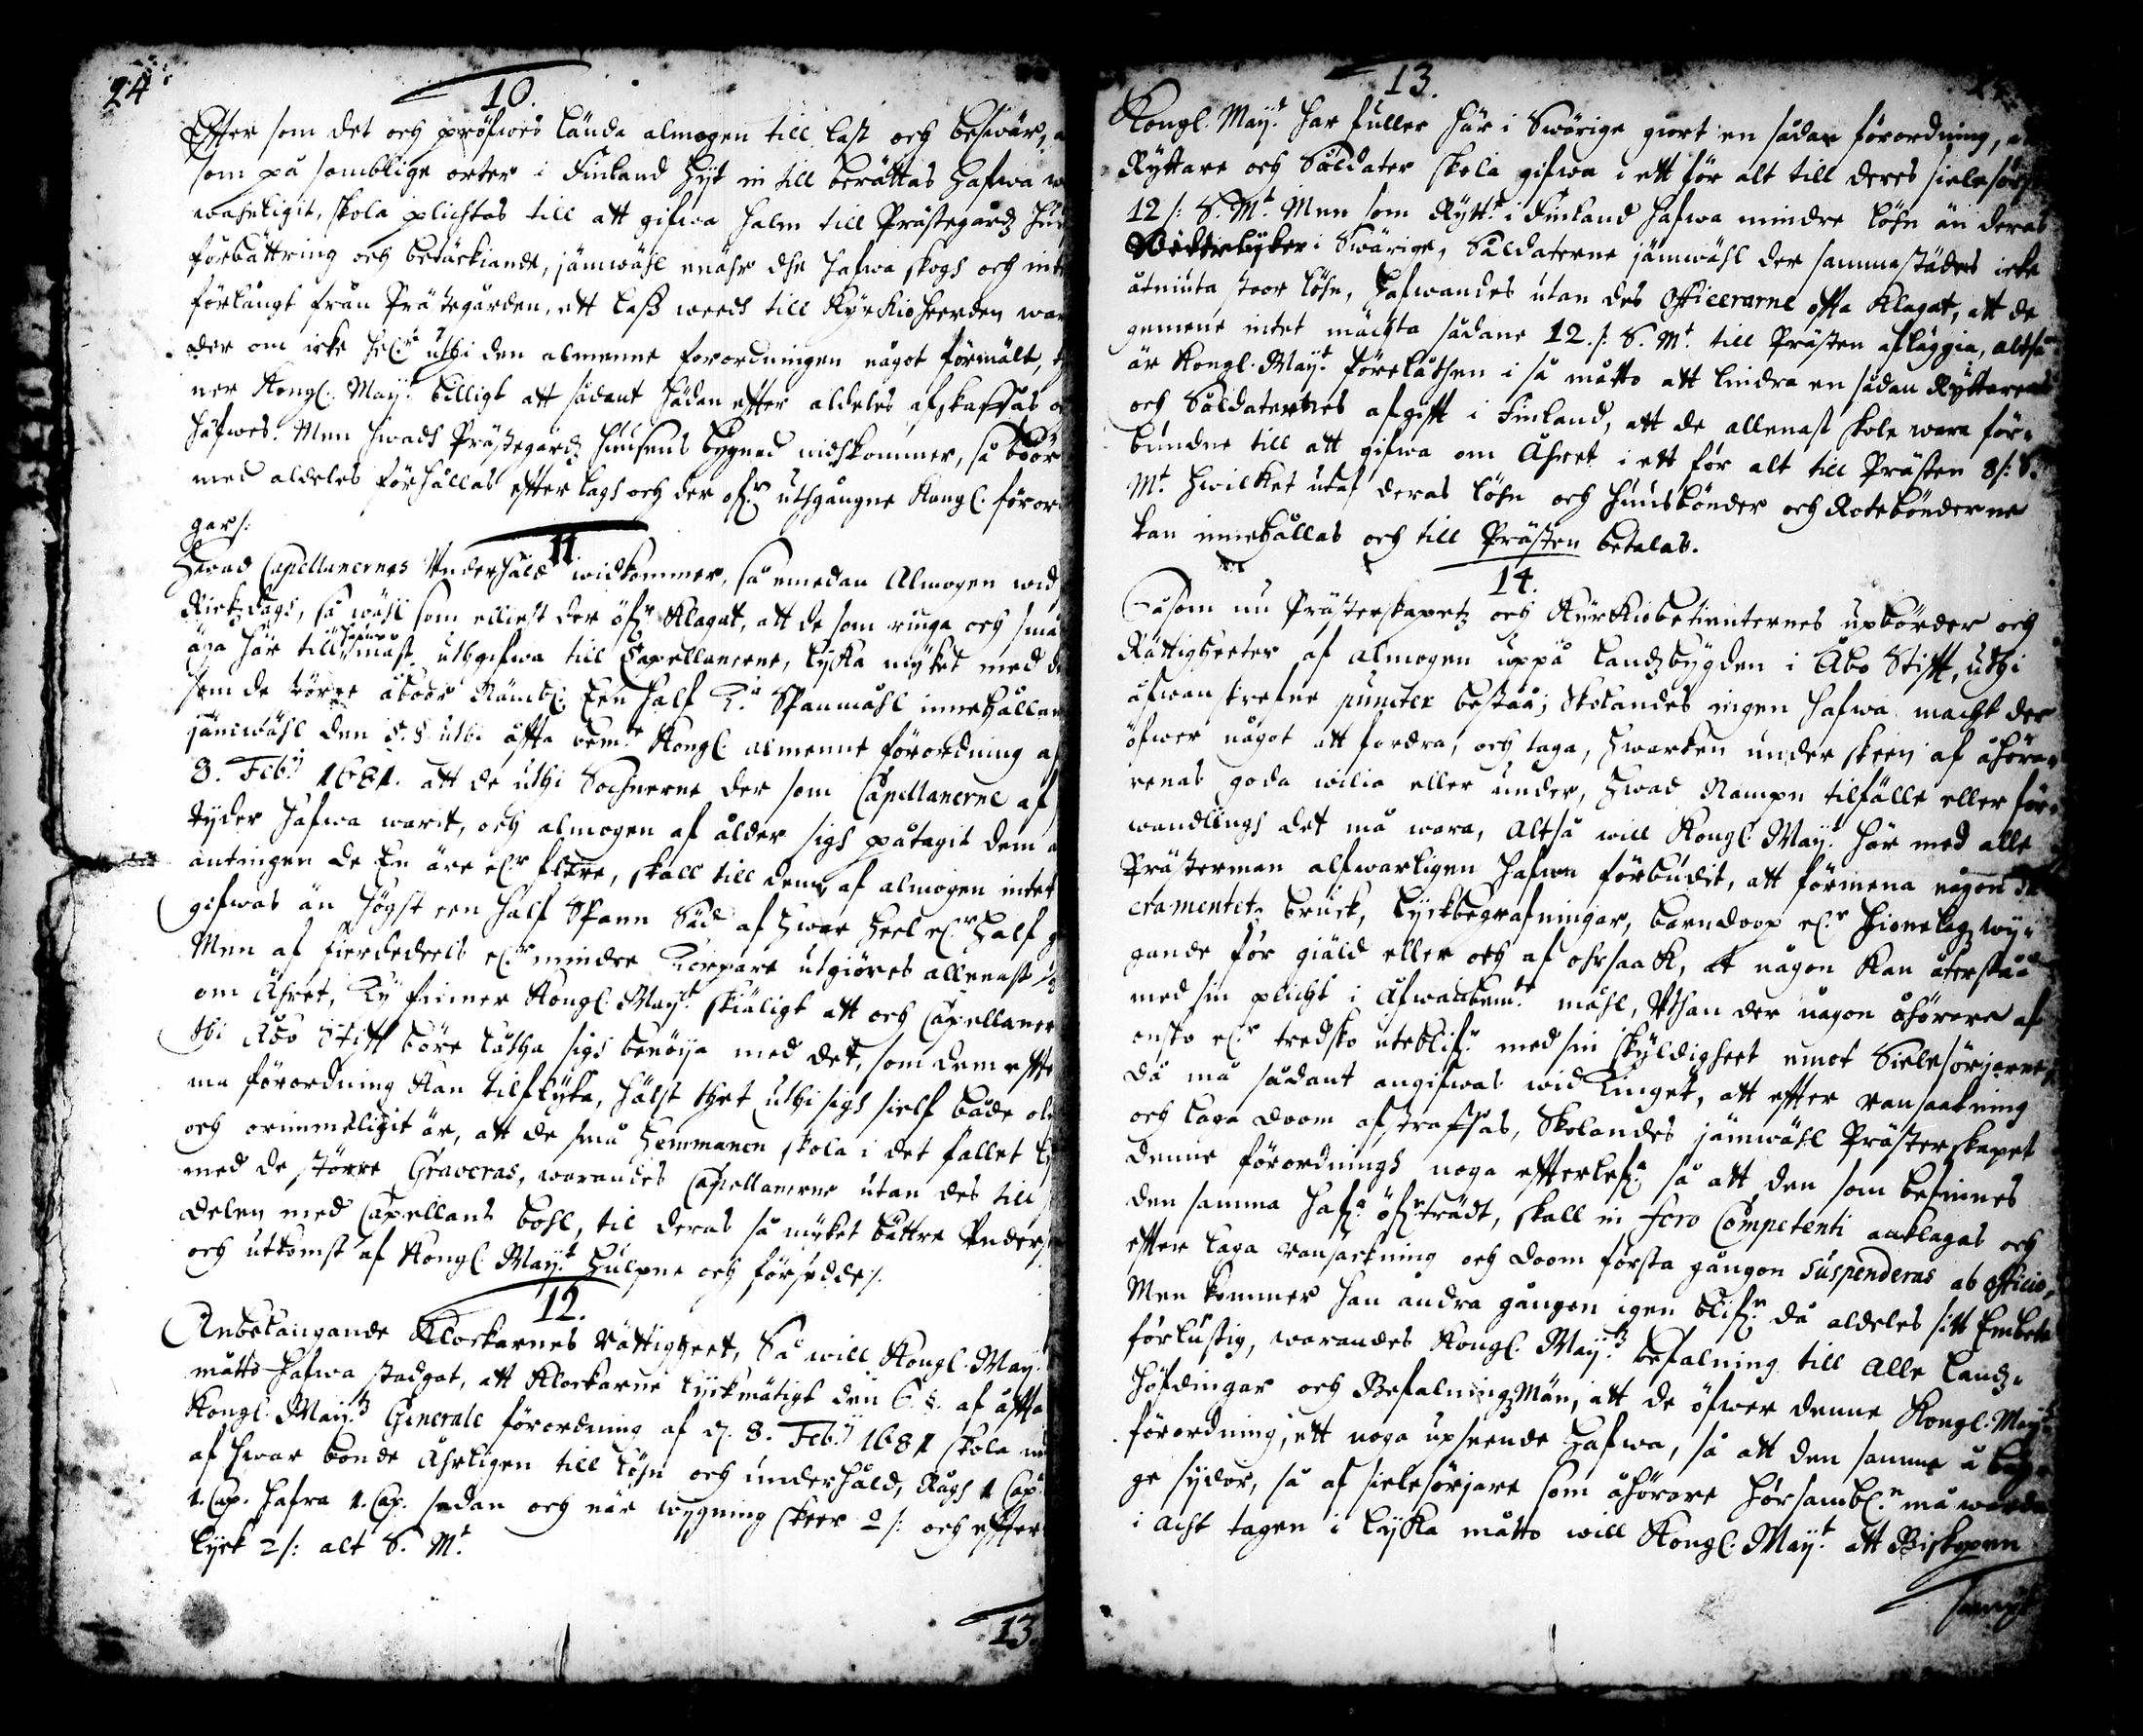 24
10.
Efter som det och pröfwes lända almogen till last och beswär,
som på somblige orter i Finland hijt in till berättas hafwa
wahnligit, skola plichtas till att gifwa halm till Prästegårdz
förbättring och betäckiande, jämwähl enähr dhe hafwa skogh och
förlångt från Prästegården, ett lass weedh till Kyrkioheerden
der om icke hel:r uthi den almenne forordningen något förmält,
ner Kongl. May:t billigt att sådant hädan effter aldeles afskaffas
häfwes. Men hwadh Prästegårdz huusens bygnad widkommer, så böör
med aldeles förhållas effter lagh och der öf:r uthgångne Kongl. föror
gar/.
11
Hwad Capellanernes Underhåld widkommer, så emedan Almogen wid
Rickzdagh, så wähl som elliest der öf:r klagat, att de som ringa och små
äga här till uthgifwa till Capellanerne, lyka myket med
som de större åboor Nämbl. Een half T:a Spanmåhl innehålla
jämwähl den 5. §. uthi offta bem:te Kongl. almenne förordning af
8. Feb:ij 1681. att de uthi Sochnerne der som Capellanerne af
tijder hafwa warit, och almogen af ålder sigh påtagit dem
antingen de En äre el:r flere, skall till dem af almogen intet
gifwas än högst een half Spann Säd af hwar heel el:r half
Men af fierdedeels el:r mindre Torpare utgiöres allenast
om Åhret, Ty finner Kongl. May:t skiäligt att och Capellaner
thi Åbo Stifft böre låtha sigh benöija med det, som dem effte
ma förordning kan tilflyta, hälst thet uthi sigh sielf både
och orimmeligit är, att de små Hemmanen skola i det fallet
med de större Graveras, warandes Capellanerne utan des till
delen med Capellans bohl, til deras så myket bättre Underh
och utkomst af Kongl. May:t hulpne och försedde/.
12.
Anbelangande Klockarnes rättigheet, Så will Kongl. May:
måtto hafwa stadgat, att Klockarne lijckmätigt den 6. §. af offta
Kongl. May:tz Generale förordning af d. 8. Feb:ij 1681 skola
af hwar bonde Åhrligen till löhn och underhåld, Rågh 1 Cap.
1. Cap. hafra 1. Cap. sedan och när wygning skeer 2/: och effter
lijck 2/: alt S. M:t
13
13.
Kongl. May:t har fuller här i Swörige giort en sådan förordning,
Ryttare och Soldater skola gifwa i ett för alt till deres sielesörj
12/: S. M:t Men som Rytt:e i Finland hafwa mindre löhn än deras
Wederlijker i Swärige, Soldaterne jämwähl der sammastädes icke
åtniuta stoor löhn, hafwandes utan des Officerarne offta klagat, att de
gemene intet mächta sådane 12./: S. M:t till Prästen afläggia, altså
är Kongl. May:t föreläthen i så måtto att lindra en sådan Ryttarens
och Soldaternes afgifft i Finland, att de allenast skole wara för-
bundne till att gifwa om Åhret i ett för alt till Prästen 8/: S.
M:t hwilket utaf deras löhn och huusbönder och Rotebönderne
kan innehållas och till Prästen betalas.
14.
Såsom nu Prästerskapetz och Kyrkiobetienternes upbörder och
Rättigheeter af almogen uppå landzbygden i Åbo Stifft, uthi
åfwanskrefne puncter bestaa; Skolandes ingen hafwa macht der
öfwer något att fordra, och taga, hwarken under skeen af åhöra-
renas goda wilia eller under, hwad Nampn tilfälle eller för-
wandlingh det må wara, Altså will Kongl. May:t här med alle
Prästerman alfwarligen hafwa förbudit, att förmena någon Sa-
cramentetz bruck, lijckbegrafningar, barndoop el:r hionelagz wy-
gande för giäld eller och af ohrsaak, at någon kan återstaa
med sin plicht i åfwanbem:te måhl, Uthan der någon åhörare af
onsko el:r tredsko uteblif:r med sin skyldigheet emot Sielesörjaren,
då må sådant angifwas wid Tinget, att effter ransaakning
och laga doom afstraffas, Skolandes jämwähl Prästerskapet
denne förordningh noga effterlef:a så att den som befinnes
den samma haf:a öf:rträdt, skall in foro Competenti anklagas och
effter laga ransackning och doom första gången suspenderas ab officio,
Men kommer han andra gången igen blif:r då aldeles sitt Embete
förlustig, warandes Kongl. May:tz befalning till Alle landz-
höfdingar och Befalningzmän, att de öfwer denne Kongl. May:tz
förordning, ett noga upseende hafwa, så att den samme å
ge sydor, så af sielesörjare som åhörare hörsambl:n må warda
i acht tagen i lyka måtto will Kongl. May:t att Biskopen